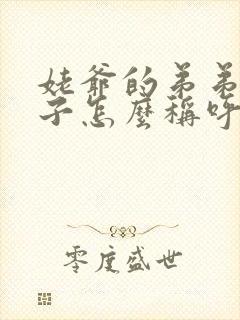 姥爷的弟弟
子怎麼稱呼
零度盛世